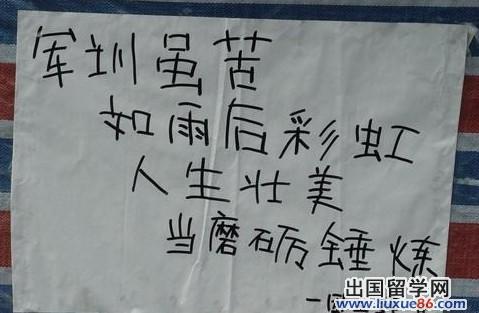 军训虽苦
如雨后彩虹
人生壮美
当磨砺锤炼
出国留学网
www.liuxue86.com